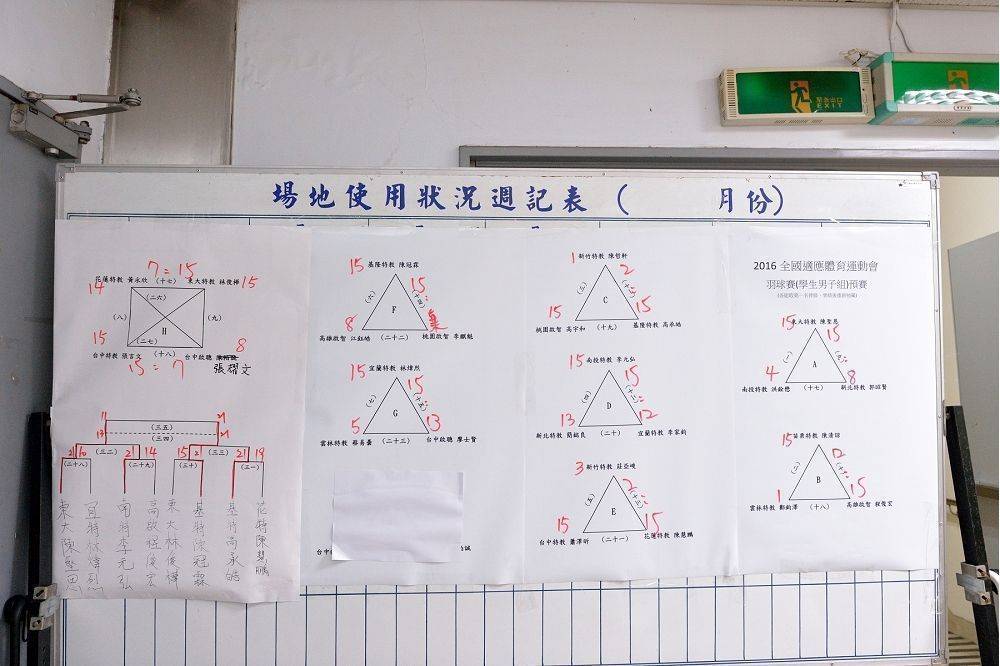 緊急出口
EXIT
場地使用狀況週記表 ( 月份)
7 = 15
花蓮特教 黃永欣 (十七) 東大特教 林俊樺
14
15
(二六)
(八)
H
(九)
(二七)
15
8
台中特教 張言文 (十八) 台中啟聰
張耀文
15 : 7
(三五)
(三四)
(三二)
(三三)
21
14
15
21
19
(二十八)
(二十九)
(三十)
(三一)
東大陳聖恩
宜特林煒烈
南特李元弘
高啟程俊宏
東大林俊樺
基特陳冠霖
基特高承皓
花特陳慧鵬
15 基隆特教 陳冠霖
15
(六)
F
(十四)
8
高雄啟智 江鈺皓 (二十二) 桃園啟智 李麒魁
15 宜蘭特教 林煒烈
15
(七)
G
(十五)
5
13
雲林特教 蔡易蓁 (二十三) 台中啟聰 廖士賢
台中
誠
1 新竹特教 陳哲軒
2
(三)
C
15
15
桃園啟智 高宇和 (十九) 基隆特教 高承皓
15 南投特教 李元弘
15
(四)
D
(十二)
13
12
新北特教 簡銘良 (二十) 宜蘭特教 李家鈞
3 新竹特教 莊亞峻
2
(五)
E
(十三)
15
15
台中特教 蕭澤昕 (二十一) 花蓮特教 陳慧鵬
2016 全國適應體育運動會
羽球賽(學生男子組)預賽
15 東大特教 陳聖恩
15
(一)
A
4
8
南投特教 洪銓懋 (十七) 新北特教 郭誼賢
15 苗栗特教 陳清諒
12
(二)
B
1
15
雲林特教 鄭鈞澤 (十八) 高雄啟智 程俊宏